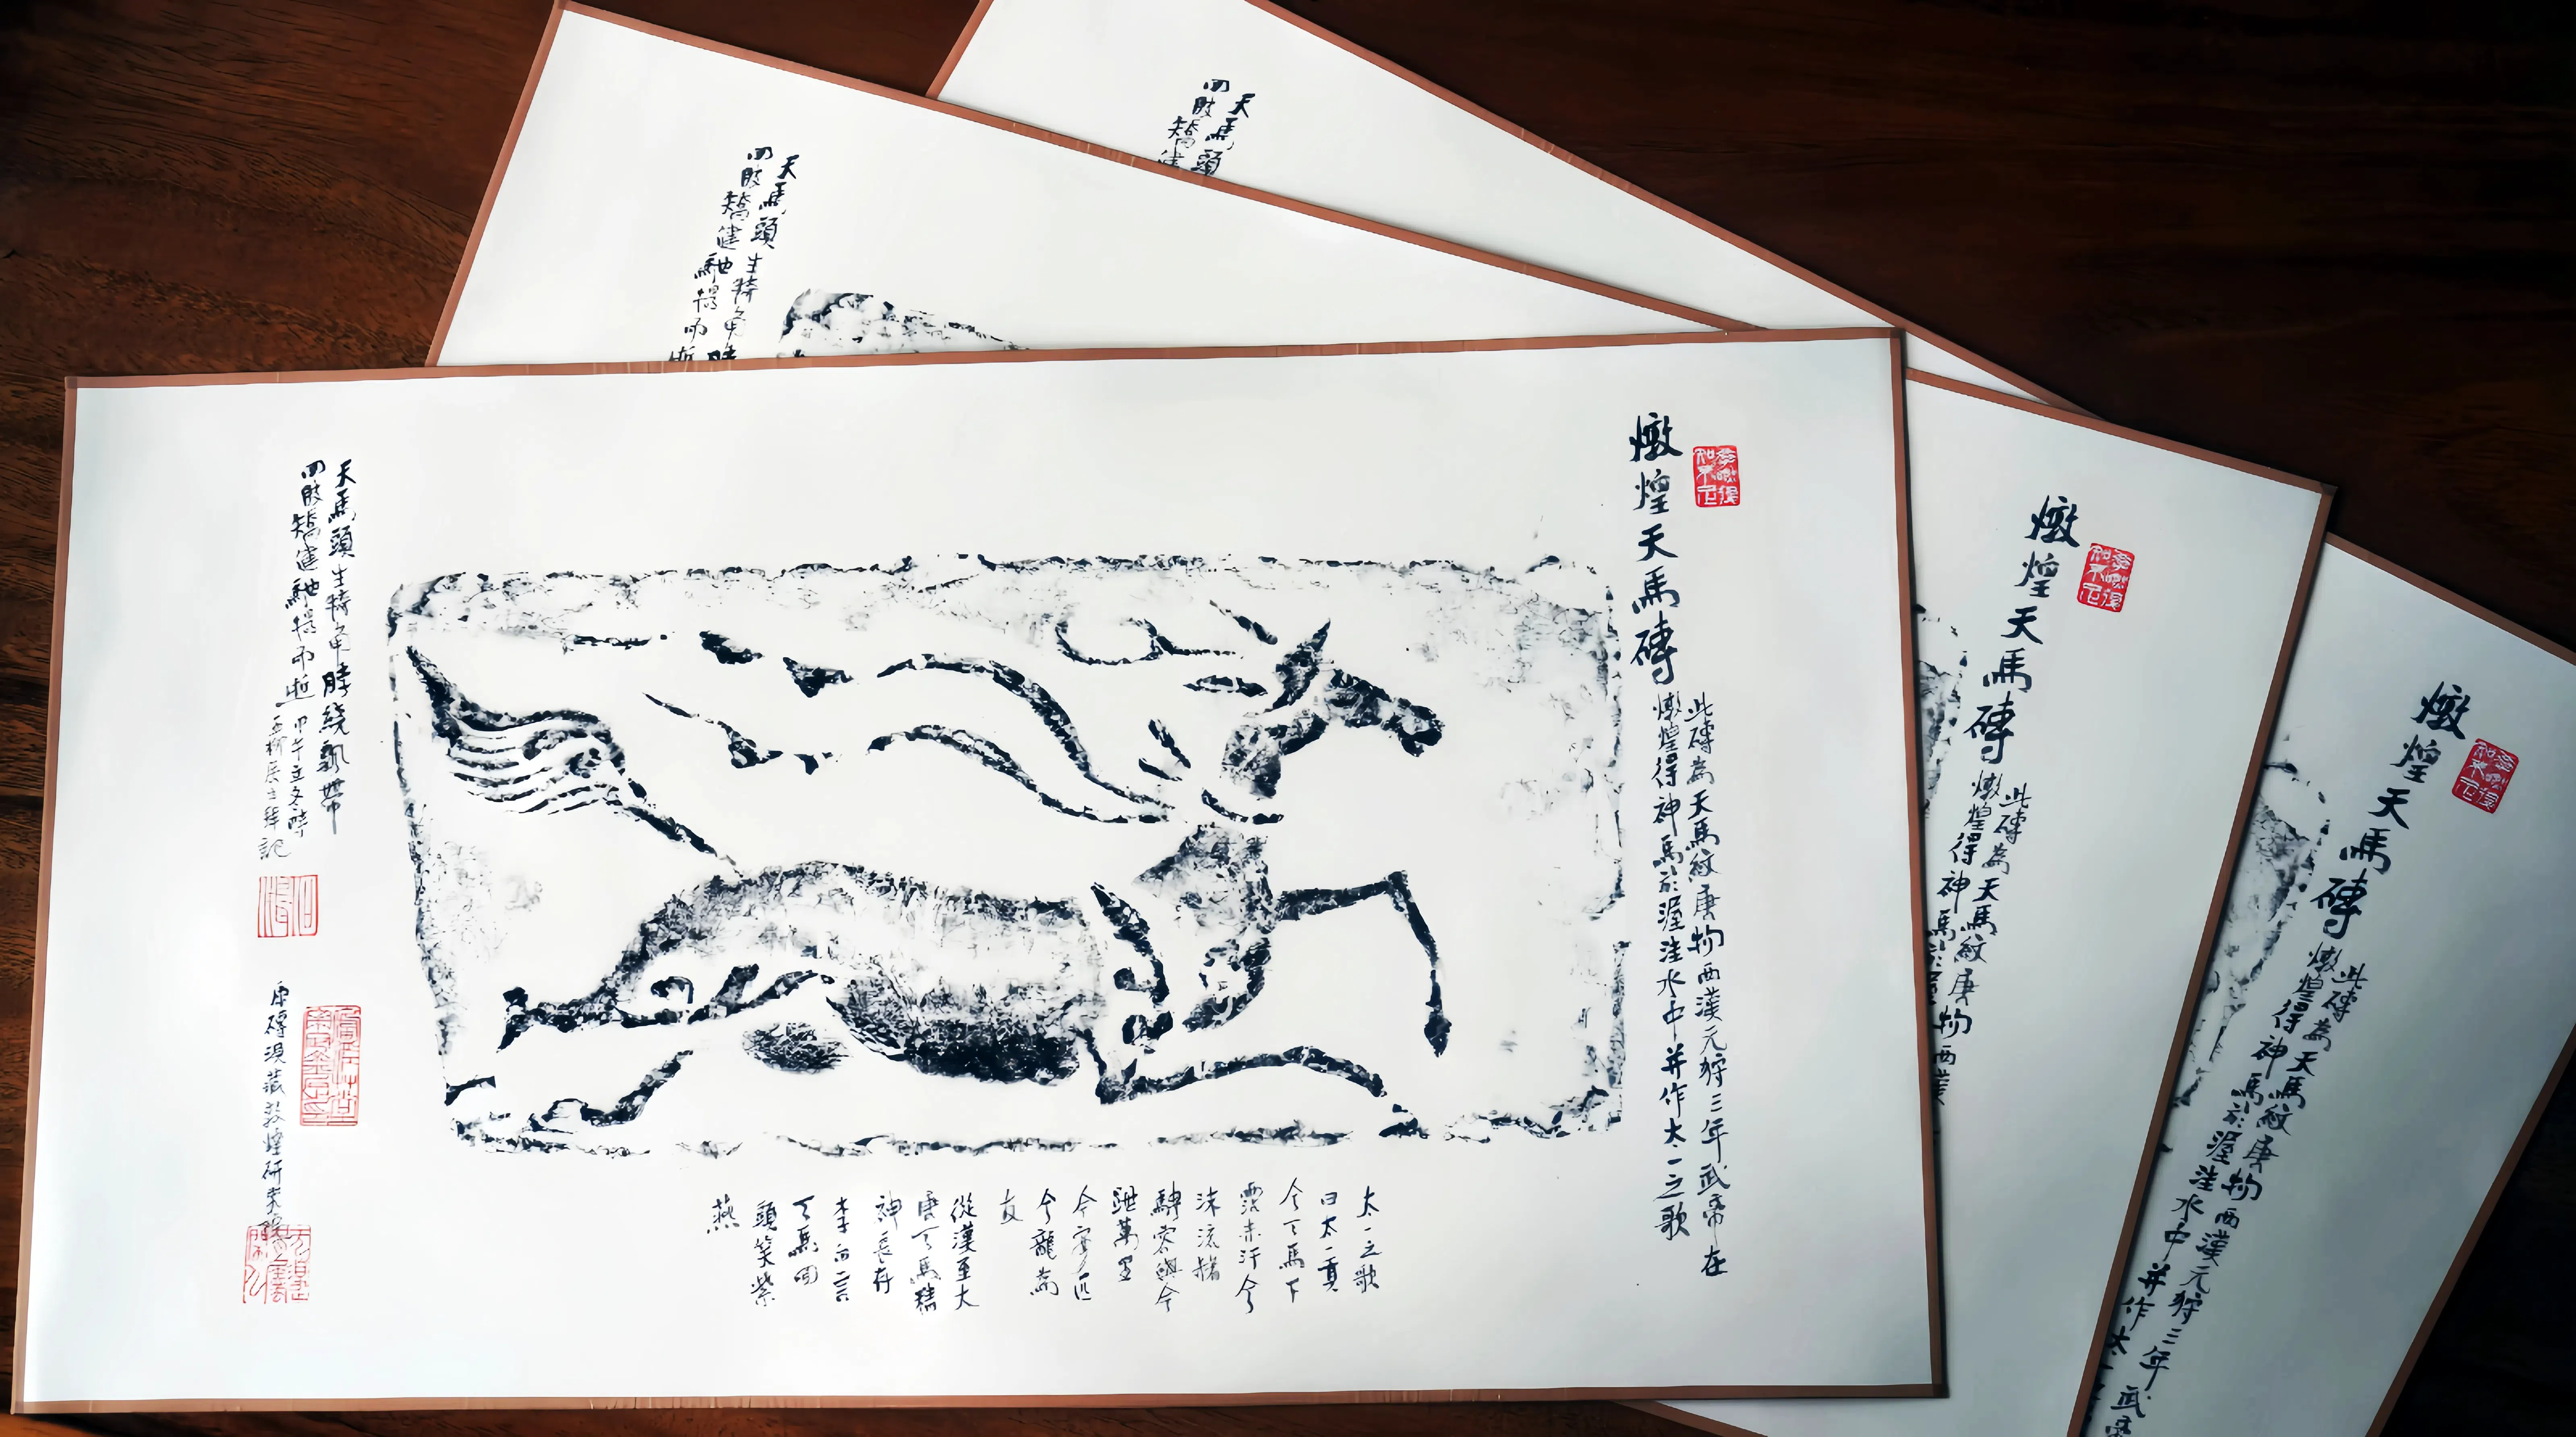 燉煌天馬磚
此磚為天馬紋唐物西漢元狩三年武帝在
燉煌得神馬於渥洼水中并作太一之歌
太一之歌
曰太一貢
兮天馬下
霑赤汗兮
沫流赭
騁容與兮
跇萬里
今安匹
兮龍為
友
從漢至大
唐天馬精
神長存
李白言
天馬回
頭笑紫
燕
天馬頭生犄角脖繞飄帶
四肢矯健馳揚而逝
甲午立冬
拜記
原磚現藏敦煌研究院
燉煌天馬磚
此磚為天馬紋唐物西漢
燉煌得神馬於渥
天馬頭生犄角脖
四肢矯健馳揚而逝
燉煌天馬磚
此磚為天馬紋唐物西漢元狩三年武帝
燉煌得神馬於渥洼水中并作太一之
天馬頭
四肢矯健